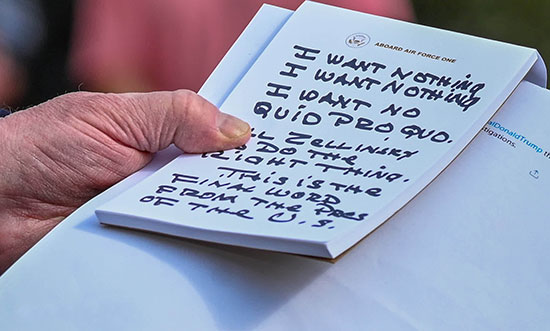 ABOARD AIR FORCE ONE
I WANT NOTHING
I WANT NOTHING
I WANT NO
QUID PRO QUO.
ZELLINSKY
DO THE
RIGHT THING.
THIS IS THE
FINAL WORD
FROM THE PRES
OF THE U.S.
alDonaldTrump
tigations.